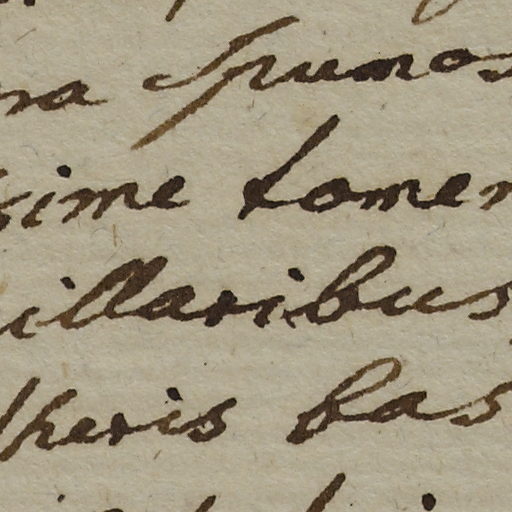 ra spumos
sime tomen
illaribus
theris bas